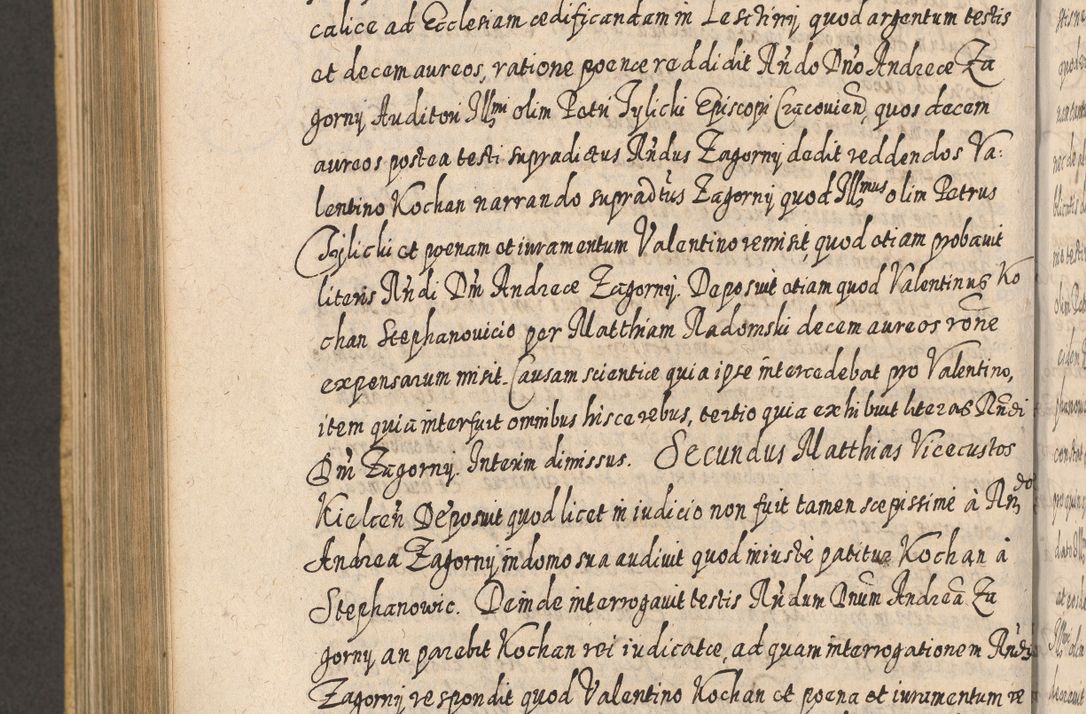 calice ad Ecclesiam ædificandam in Lesctiny, quod argentum testis
et decem aureos, ratione poenæ reddidit Rńdo Dńo Andreæ Za
gorny Auditori Illmi olim Petri Tylicki Episcopi Cracovien, quos decem
aureos postea testi supradictus Rńdus Zagorny dedit reddendos Va:
lentino Kochan narrando supradtus Zagorny quod Illmus olim Petrus
Tylicki et poenam et iuramentum Valentino remisit, quod etiam probavit
literis Rńdi Dńi Andreæ Zagorny. Deposuit etiam quod Valentinus Ko
chan Stephanovicio per Matthiam Radomski decem aureos rōne
expensarum misit. Causam scientiæ quia ipse intercedebat pro Valentino,
item quia interfuit omnibus hisce rebus, tertio quia exhibuit literas Rńdi
Dńi Zagorny. Interim dimissus. Secundus Matthias Vicecustos
Kielceń Deposuit quod licet in iudicio non fuit tamen sæpissime à Rndo
Andrea Zagorny in domo sua audivit quod iniustè patitur Kochan à
Stephanowic. Deinde interrogavit testis Rńdum Dnum Andreā Za
gorny an parebit Kochan rei iudicatæ, ad quam interrogationem Rńdus
Zagorny respondit quod Valentino Kochan et poena et iuramentum re